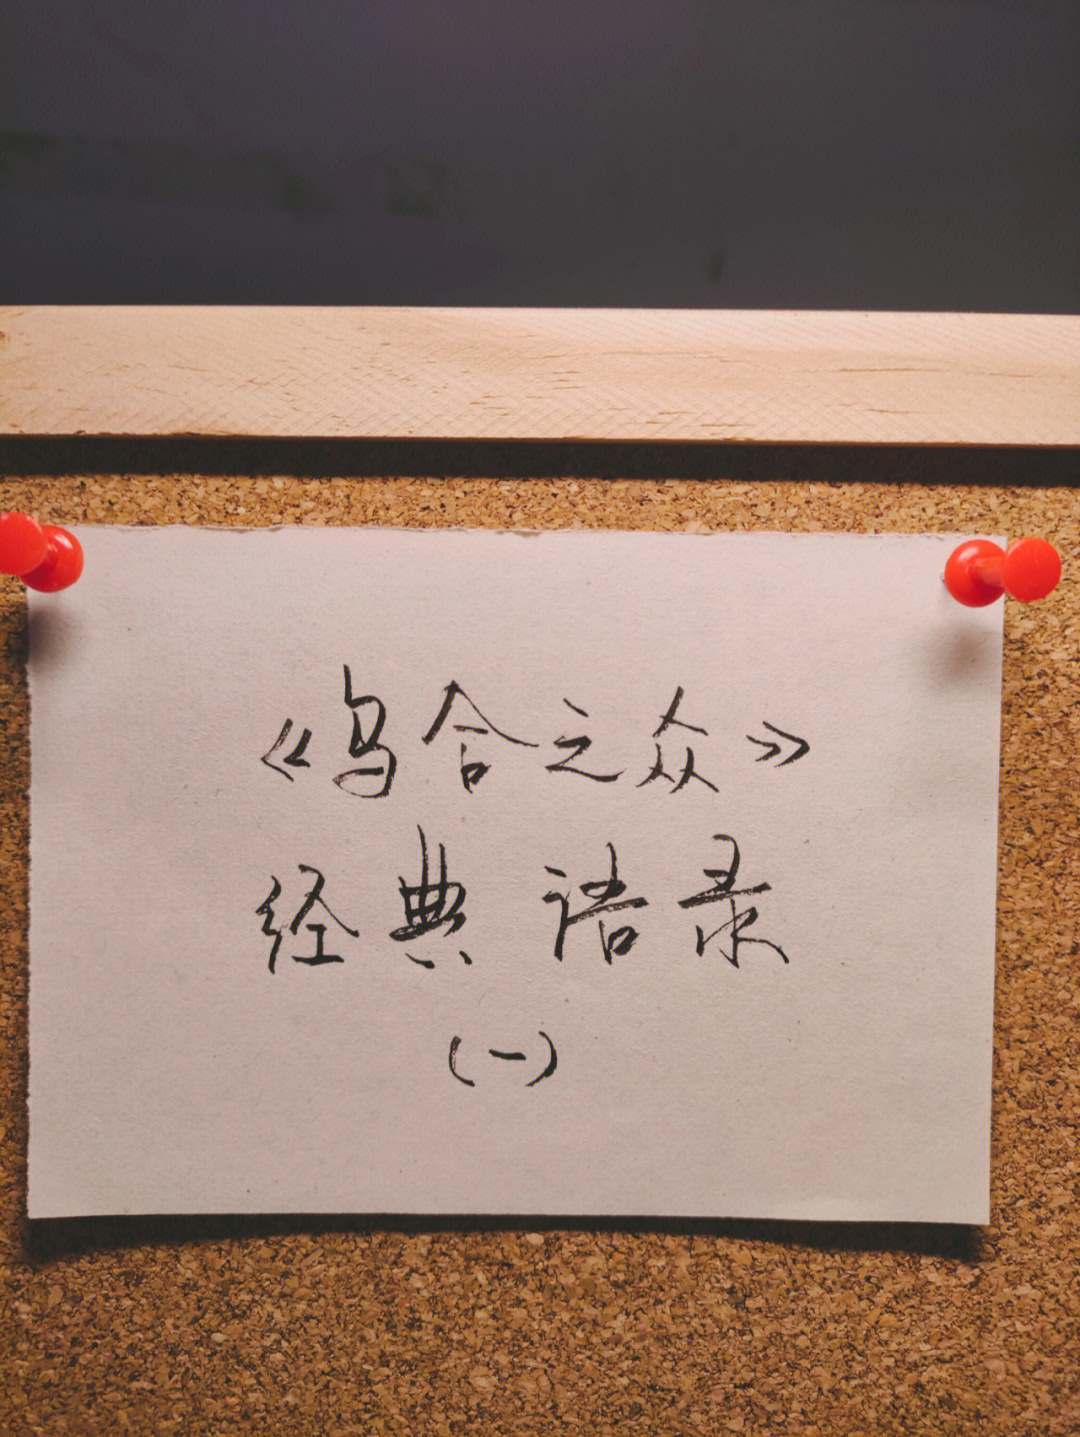 《乌合之众》
经典语录
(一)